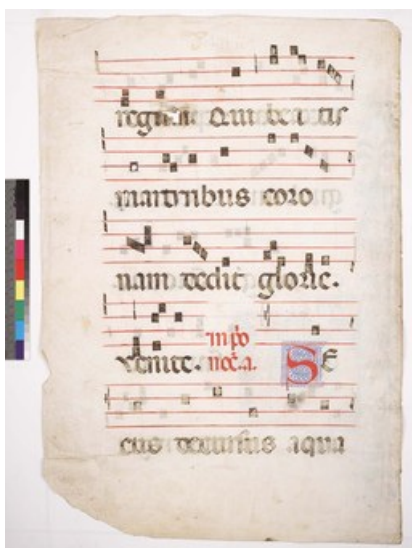 Qui beatis
martiribus coro
nam dedit glorie.
venite. in p̄o
noc̄. a. SE
cus decursus aqua